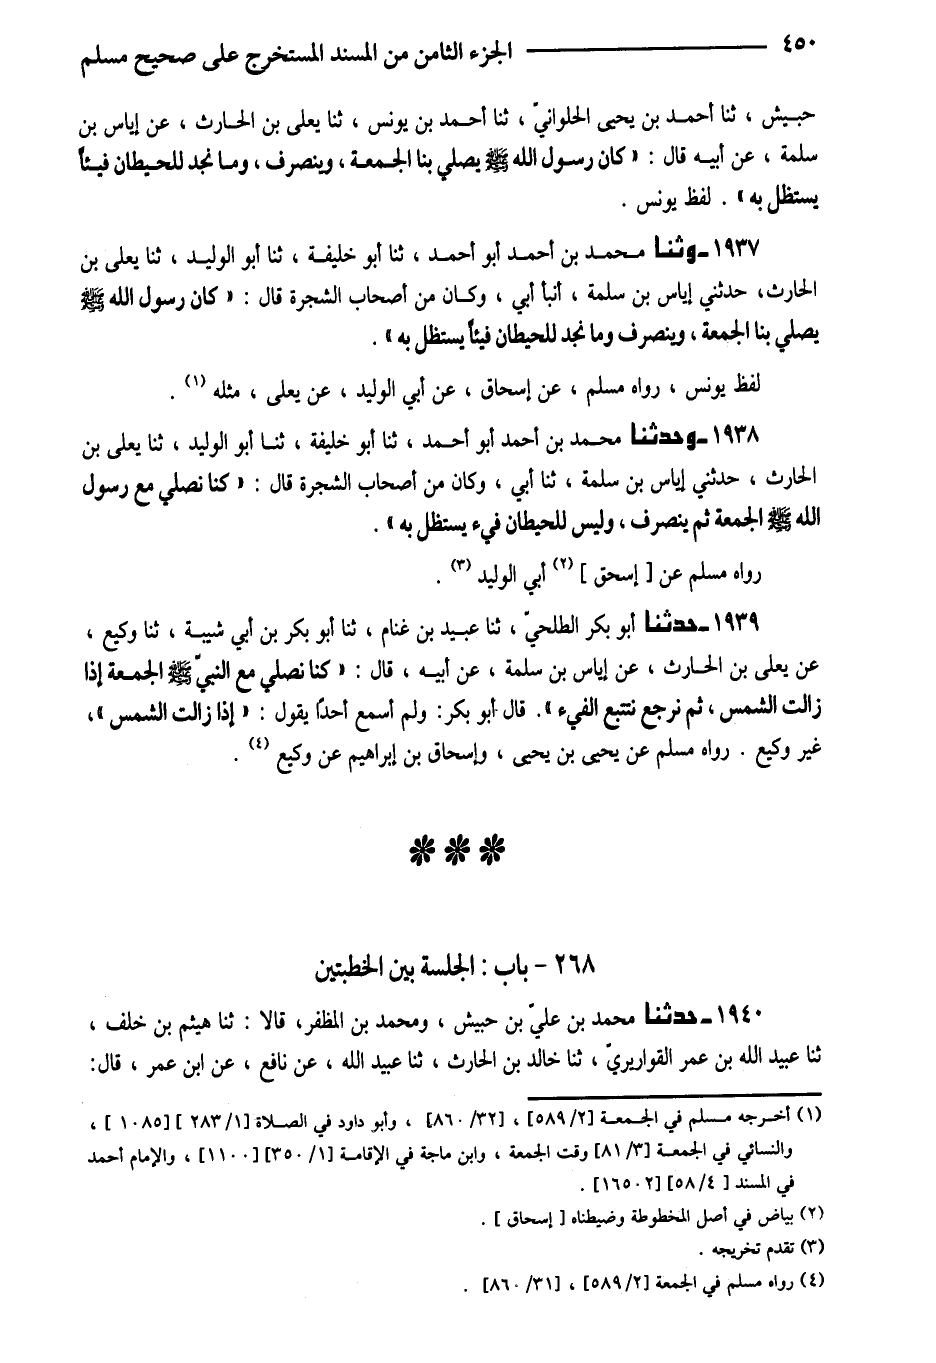 ٤٥٠ الجزء الثامن من المسند المستخرج على صحيح مسلم
حبيش ، ثنا أحمد بن يحيى الحلوانيّ ، ثنا أحمد بن يونس ، ثنا يعلى بن الحارث ، عن إياس بن
سلمة ، عن أبيه قال : « كان رسول الله ﷺ يصلي بنا الجمعة ، وينصرف ، وما نجد للحيطان فيئاً
يستظل به » . لفظ يونس .
١٩٣٧ ـ وثنا محمد بن أحمد أبو أحمد ، ثنا أبو خليفة ، ثنا أبو الوليد ، ثنا يعلى بن
الحارث، حدثني إياس بن سلمة ، أنبأ أبي ، وكان من أصحاب الشجرة قال : « كان رسول الله ﷺ
يصلي بنا الجمعة ، وينصرف وما نجد للحيطان فيئاً يستظل به » .
لفظ يونس ، رواه مسلم ، عن إسحاق ، عن أبي الوليد ، عن يعلى ، مثله (١) .
١٩٣٨ ـ وحدثنا محمد بن أحمد أبو أحمد ، ثنا أبو خليفة ، ثنا أبو الوليد ، ثنا يعلى بن
الحارث ، حدثني إياس بن سلمة ، ثنا أبي ، وكان من أصحاب الشجرة قال : « كنا نصلي مع رسول
الله ﷺ الجمعة ثم ينصرف ، وليس للحيطان فيء يستظل به » .
رواه مسلم عن [ إسحق ] (٢) أبي الوليد (٣) .
١٩٣٩ ـ حدثنا أبو بكر الطلحيّ ، ثنا عبيد بن غنام ، ثنا أبو بكر بن أبي شيبة ، ثنا وكيع ،
عن يعلى بن الحارث ، عن إياس بن سلمة ، عن أبيه ، قال : « كنا نصلي مع النبيّ ﷺ الجمعة إذا
زالت الشمس ، ثم نرجع نتتبع الفيء » . قال أبو بكر : ولم أسمع أحدًا يقول : « إذا زالت الشمس » ،
غير وكيع . رواه مسلم عن يحيى بن يحيى ، وإسحاق بن إبراهيم عن وكيع (٤) .
٢٦٨ - باب : الجلسة بين الخطبتين
١٩٤٠ ـ حدثنا محمد بن عليّ بن حبيش ، ومحمد بن المظفر، قالا : ثنا هيثم بن خلف ،
ثنا عبيد الله بن عمر القواريريّ ، ثنا خالد بن الحارث ، ثنا عبيد الله ، عن نافع ، عن ابن عمر ، قال:
(١) أخرجه مسلم في الجمعة [٥٨٩/٢] ، [٨٦٠/٣٢] ، وأبو داود في الصلاة [٢٨٣/١ ] [١٠٨٥ ] ،
والنسائي في الجمعة [٨١/٣] وقت الجمعة ، وابن ماجة في الإقامة [٣٥٠/١] [١١٠٠] ، والإمام أحمد
في المسند [ ٥٨/٤] [١٦٥٠٢] .
(٢) بياض في أصل المخطوطة وضبطناه [ إسحاق ] .
(٣) تقدم تخريجه .
(٤) رواه مسلم في الجمعة [٥٨٩/٢] ، [٨٦٠/٣١] .